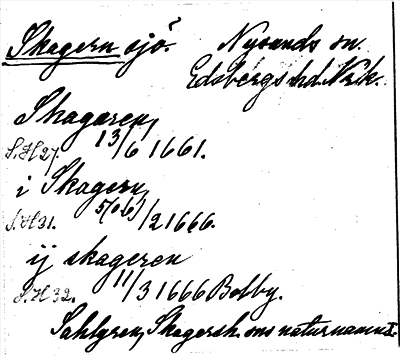 Skagern sjö Nysunds sn.
Edsbergs hd. Nrk.
Skagaren,
S.H 27. 13/6 1661.
i Skagern,
S.H 31. 5 (o. 6)/2 1666.
ij skageren
S.H 32. 11/3 1666 Bolby.
Sahlgren, Skagersh. sns naturnamn I.